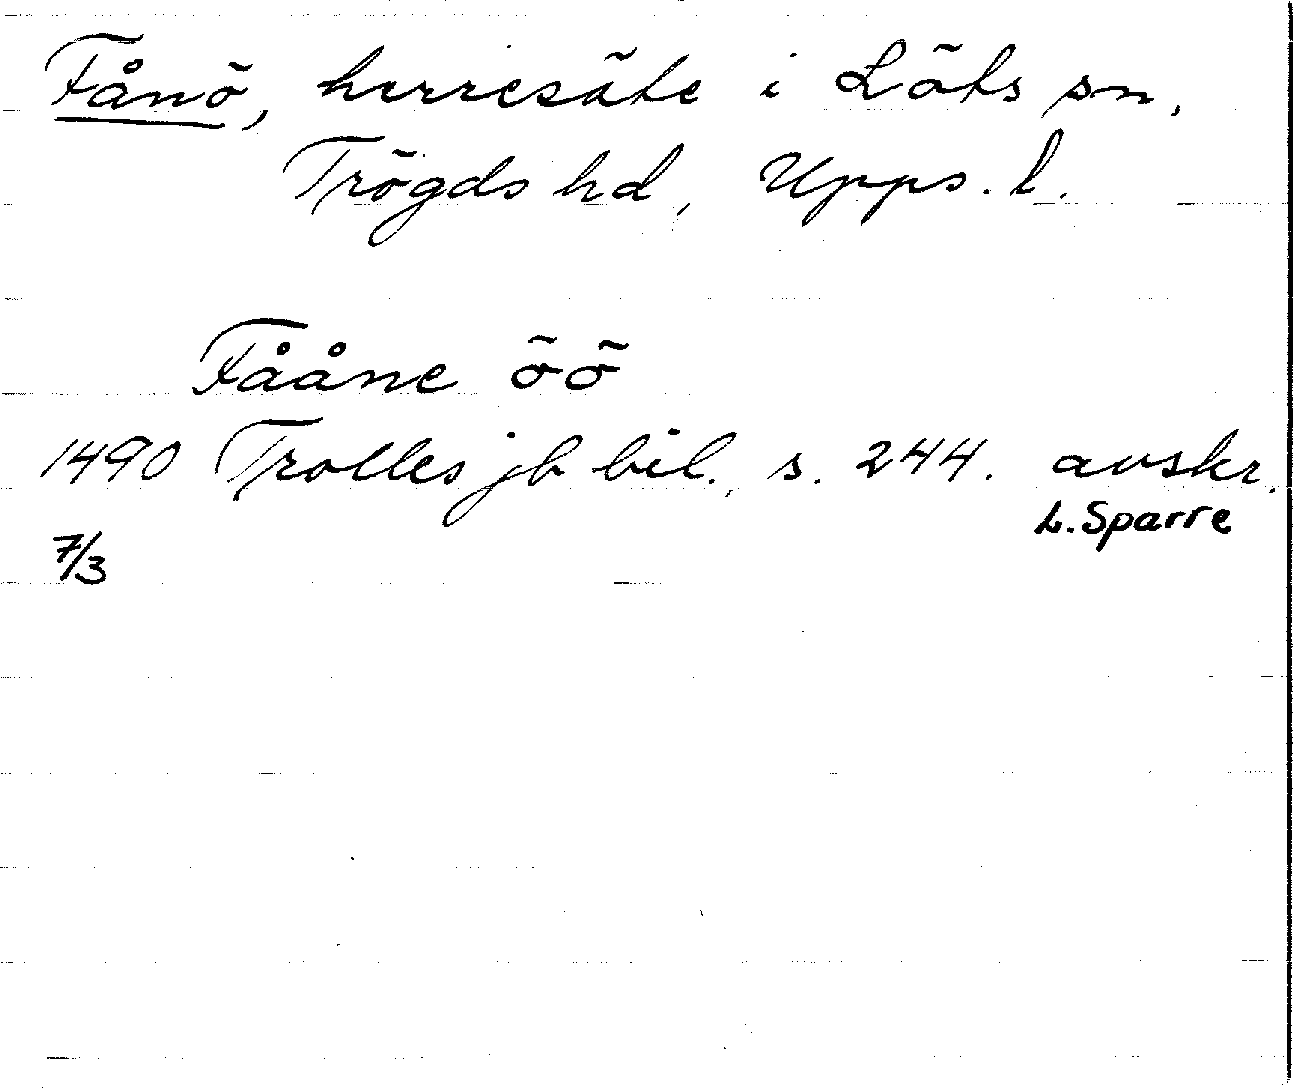 Fånö, herresäte i Löts sn,
Trögds hd, Upps. l.
Fååne öö
1490 Trolles jb bil., s. 244. avskr.
L. Sparre
7/3